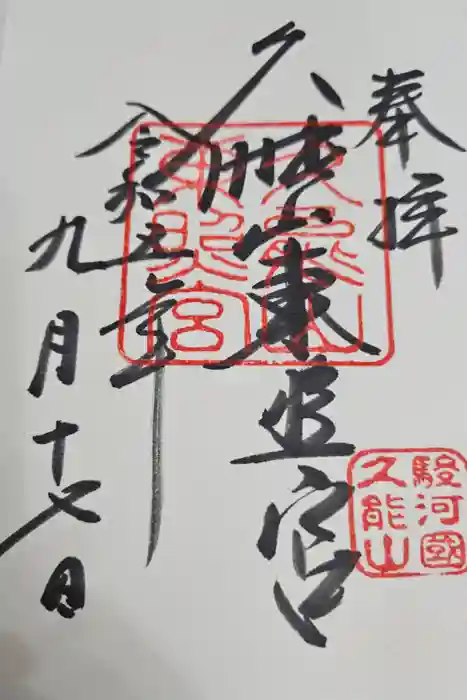 奉拝
久能山東照宮
令和五年
九月十七日
久能山
東照宮
駿河國
久能山